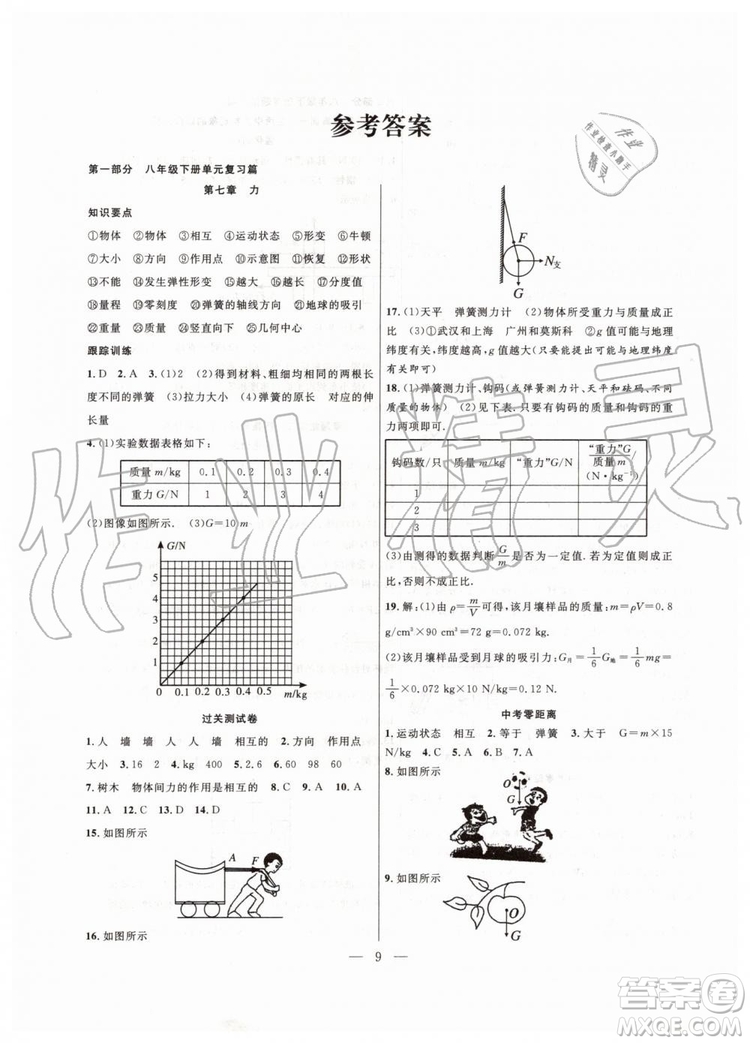 参考答案
第一部分 八年级下册单元复习篇
第七章 力
知识要点
①物体 ②物体 ③相互 ④运动状态 ⑤形变 ⑥牛顿
⑦大小 ⑧方向 ⑨作用点 ⑩示意图 ⑪恢复 ⑫形状
⑬不能 ⑭发生弹性形变 ⑮越长 ⑯越大 ⑰分度值
⑱量程 ⑲零刻度 ⑳弹簧的轴线方向 ㉑地球的吸引
㉒质量 ㉓重垂线 ㉔竖直向下 ㉕几何中心
跟踪训练
1.D 2.A 3.(1)2 (2)得到材料、粗细均相同的两根长
度不同的弹簧 (3)拉力大小 (4)弹簧的原长 对应的伸
长量
4.(1)实验数据表格如下:
质量 m/kg 0.1 0.2 0.3 0.4
重力 G/N 1 2 3 4
(2)图像如图所示. (3)G=10m
G/N
5
4
3
2
1
0 0.1 0.2 0.3 0.4 0.5 m/kg
过关测试卷
1.人 墙 墙 人 人 墙 相互的 2.方向 作用点
大小 3.相互的 4.750 5.2.6 6.98 60
7.树木 物体间力的作用是相互的 8.C 9.A 10.A
11.A 12.C 13.D 14.C
15.如图所示
A F
16.如图所示
F
N支
G
17.(1)天平 弹簧测力计 (2)物体所受重力与质量成正
比 (3)①武汉和上海 广州和莫斯科 ②g 值可能与地理
纬度有关,纬度越高,g 值越大(只要说可能与地理纬度
有关即可)
18.(1)弹簧测力计、钩码(或弹簧测力计、天平和砝码、不同
质量的物体) (2)见下表.只要有钩码的质量和钩码的重
力两项即可.
钩码数/只 质量 m/kg “重力”G/N “重力”G/质量 m (N·kg⁻¹)
1
2
3
(3)由测得的数据判断G/m是否为一定值.若为定值则成正
比,否则不成正比.
19.解:(1)由 ρ=m/V可得,该月壤样品的质量:m=ρV=0.8
g/cm³×90 cm³=72 g=0.072 kg
(2)该月壤样品受到月球的吸引力:G月=1/6G地=1/6mg=
1/6×0.072 kg×10 N/kg=0.12 N
中考零距离
1.运动状态 相互 2.等于 弹簧 3.大于 G/m=15
N/kg 4.C 5.A 6.B 7.A
8.如图所示
O
G
9.如图所示
O
G
9
作业
作业检查小助手
精灵
作业精灵
答案圈
MXQE.COM